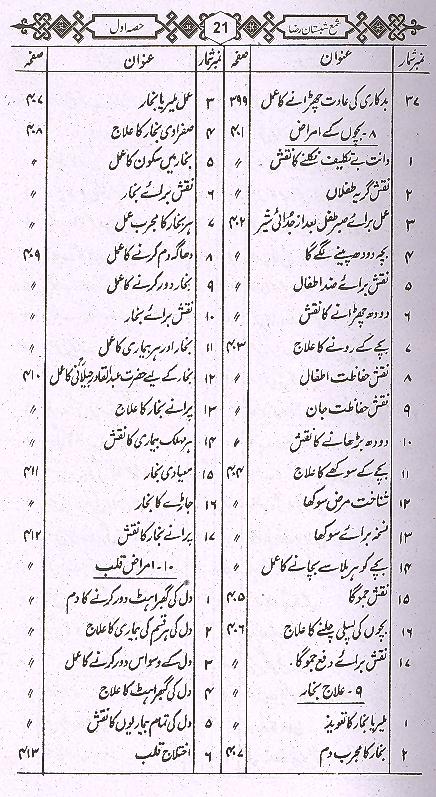 شمع شبستان رضا 21 حصہ اول
نمبر شمار عنوان صفحہ
۳۷ بدکاری کی عادت چھڑانے کا عمل ۳۹۹
۸۔ بچوں کے امراض ۴۰۱
۱ دانت بے تکلیف نکلنے کا نقش 〃
۲ نقش گریہ طفلاں 〃
۳ عمل برائے صبر طفل بعد از جدائی شیر ۴۰۲
۴ بچہ دودھ پینے لگے گا 〃
۵ نقش برائے ضد اطفال 〃
۶ دودھ چھڑانے کا نقش 〃
۷ بچے کے رونے کا علاج ۴۰۳
۸ نقش حفاظت اطفال 〃
۹ نقش حفاظت جان 〃
۱۰ دودھ بڑھانے کا نقش 〃
۱۱ بچے کے سوکھے کا علاج ۴۰۴
۱۲ شناخت مرض سوکھا 〃
۱۳ نسخہ برائے سوکھا 〃
۱۴ بچے کو ہر بلا سے بچانے کا عمل 〃
۱۵ نقش جموگا ۴۰۵
۱۶ بچوں کی پسلی چلنے کا علاج ۴۰۶
۱۷ نقش برائے دفع جموگا۔ 〃
۹۔ علاج بخار
۱ ملیریا بخار کا تعویذ 〃
۲ بخار کا مجرب دم ۴۰۷
نمبر شمار عنوان صفحہ
۳ عمل ملیریا بخار ۴۰۷
۴ صفراوی بخار کا علاج ۴۰۸
۵ بخار میں سکون کا عمل 〃
۶ نقش برائے بخار 〃
۷ ہر بخار کا مجرب عمل 〃
۸ دھاگہ دم کرنے کا عمل ۴۰۹
۹ بخار دور کرنے کا عمل 〃
۱۰ نقش برائے بخار 〃
۱۱ بخار اور ہر بیماری کا عمل 〃
۱۲ بخار کے لیے حضرت عبدالقادر جیلانیؒ کا عمل ۴۱۰
۱۳ پرانے بخار کا علاج 〃
۱۴ ہر مہلک بیماری کا نقش 〃
۱۵ میعادی بخار ۴۱۱
۱۶ جاڑے کا بخار 〃
۱۷ پرانے بخار کا نقش ۴۱۲
۱۰۔ امراض قلب
۱ دل کی گھبراہٹ دور کرنے کا دم 〃
۲ دل کی ہر قسم کی بیماری کا علاج 〃
۳ دل کے وسواس دور کرنے کا عمل 〃
۴ دل کی گھبراہٹ کا علاج 〃
۵ دل کی تمام بیماریوں کا نقش 〃
۶ اختلاج قلب ۴۱۳